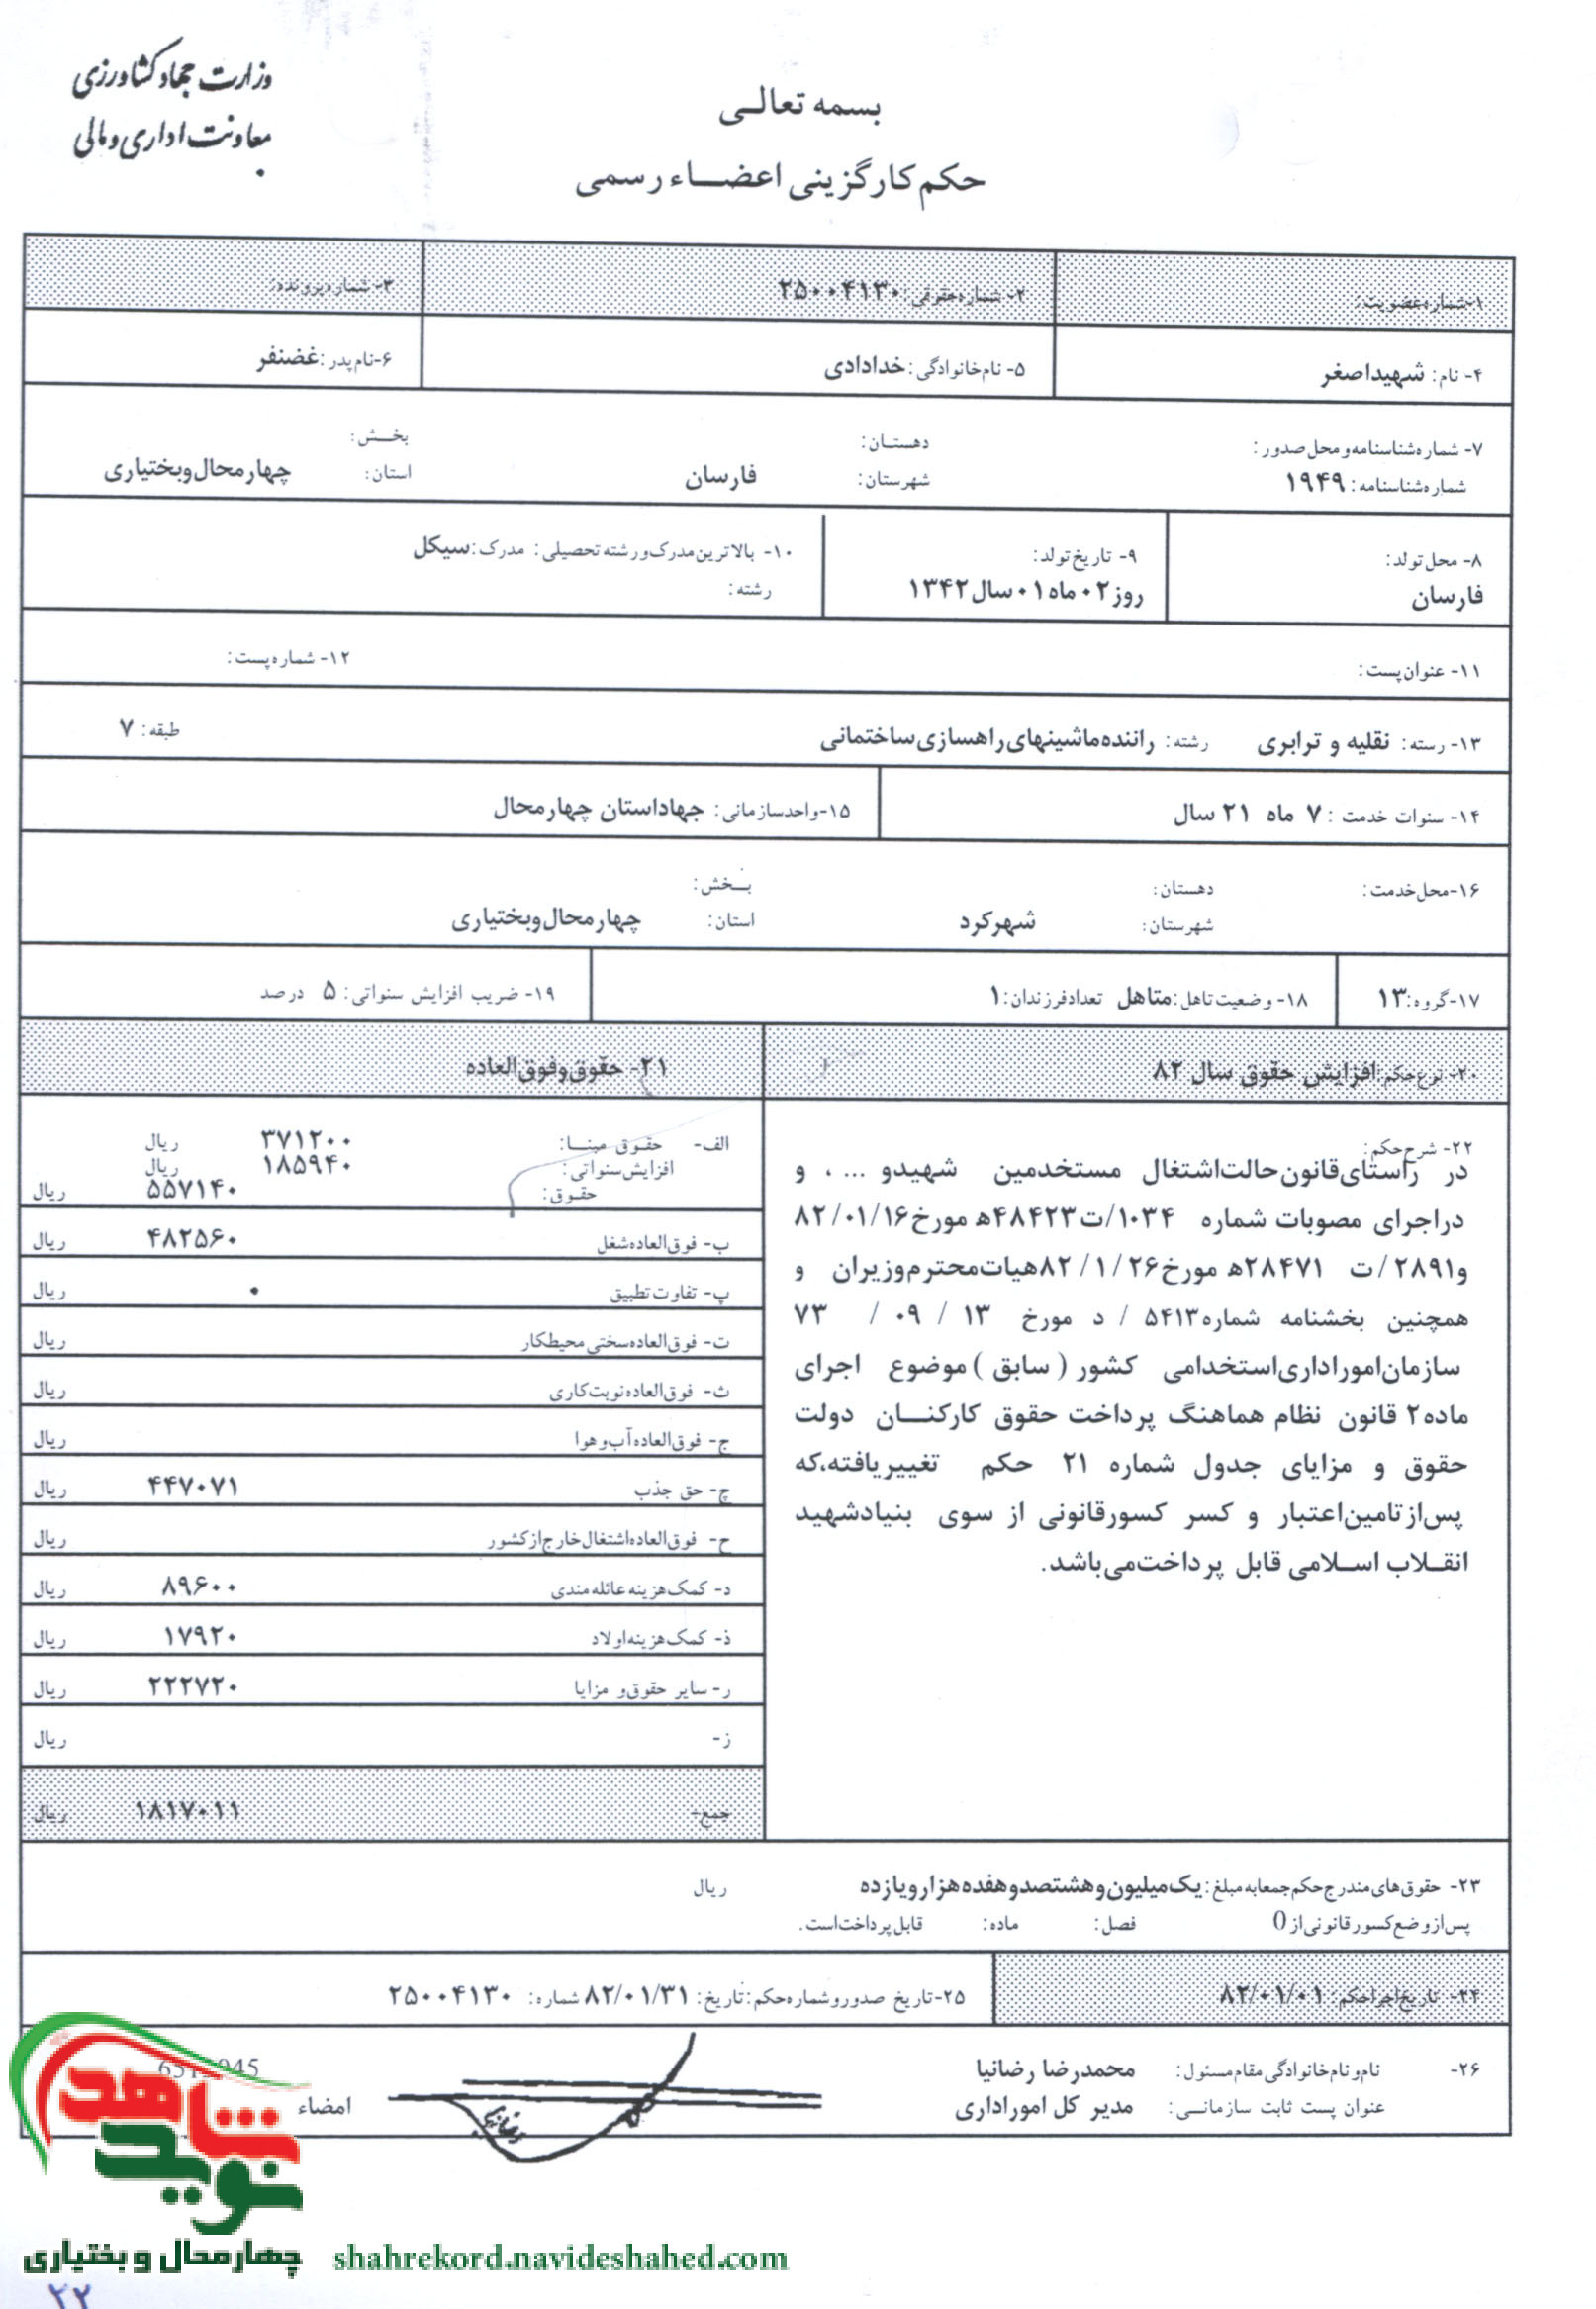 وزارت جهاد کشاورزی
معاونت اداری و مالی
بسمه تعالی
حکم کارگزینی اعضاء رسمی
۱- شماره عضویت: ۲- شماره حقوقی: ۲۵۰۰۴۱۳۰ ۳- شماره پرونده:
۴- نام: شهیداصغر ۵- نام خانوادگی: خدادادی ۶- نام پدر: غضنفر
۷- شماره شناسنامه و محل صدور: دهستان: بخش:
شماره شناسنامه: ۱۹۴۹ شهرستان: فارسان استان: چهارمحال وبختیاری
۸- محل تولد: ۹- تاریخ تولد: ۱۰- بالاترین مدرک و رشته تحصیلی: مدرک: سیکل
فارسان روز ۰۲ ماه ۰۱ سال ۱۳۴۲ رشته:
۱۱- عنوان پست: ۱۲- شماره پست:
۱۳- رسته: نقلیه و ترابری رشته: راننده ماشینهای راهسازی ساختمانی طبقه: ۷
۱۴- سنوات خدمت: ۷ ماه ۲۱ سال ۱۵- واحد سازمانی: جهاداستان چهارمحال
۱۶- محل خدمت: دهستان: بخش:
شهرستان: شهرکرد استان: چهارمحال وبختیاری
۱۷- گروه: ۱۳ ۱۸- وضعیت تاهل: متاهل تعداد فرزندان: ۱ ۱۹- ضریب افزایش سنواتی: ۵ درصد
۲۰- نوع حکم: افزایش حقوق سال ۸۲
۲۲- شرح حکم:
در راستای قانون حالت اشتغال مستخدمین شهیدو ... ، و
دراجرای مصوبات شماره ۱۰۳۴/ت۴۸۴۲۳ه مورخ ۸۲/۰۱/۱۶
و۲۸۹۱/ ت ۲۸۴۷۱ه مورخ ۸۲/۱/۲۶ هیات محترم وزیران و
همچنین بخشنامه شماره ۵۴۱۳ / د مورخ ۱۳ / ۰۹ / ۷۳
سازمان اموراداری استخدامی کشور ( سابق ) موضوع اجرای
ماده ۲ قانون نظام هماهنگ پرداخت حقوق کارکنان دولت
حقوق و مزایای جدول شماره ۲۱ حکم تغییریافته،که
پس از تامین اعتبار و کسر کسورقانونی از سوی بنیادشهید
انقلاب اسلامی قابل پرداخت می باشد.
۲۱- حقوق و فوق العاده
الف- حقوق مبنا: ۳۷۱۲۰۰ ریال
افزایش سنواتی: ۱۸۵۹۴۰ ریال
حقوق: ۵۵۷۱۴۰ ریال
ب- فوق العاده شغل ۴۸۲۵۶۰ ریال
پ- تفاوت تطبیق ۰ ریال
ت- فوق العاده سختی محیط کار ریال
ث- فوق العاده نوبت کاری ریال
ج- فوق العاده آب و هوا ریال
چ- حق جذب ۴۴۷۰۷۱ ریال
ح- فوق العاده اشتغال خارج از کشور ریال
د- کمک هزینه عائله مندی ۸۹۶۰۰ ریال
ذ- کمک هزینه اولاد ۱۷۹۲۰ ریال
ر- سایر حقوق و مزایا ۲۲۲۷۲۰ ریال
ز- ریال
جمع- ۱۸۱۷۰۱۱ ریال
۲۳- حقوق های مندرج حکم جمعا به مبلغ: یک میلیون وهشتصدوهفده هزارویازده ریال
پس از وضع کسور قانونی از 0 فصل: ماده: قابل پرداخت است.
۲۴- تاریخ اجرا حکم: ۸۲/۰۱/۰۱ ۲۵- تاریخ صدور و شماره حکم: تاریخ: ۸۲/۰۱/۳۱ شماره: ۲۵۰۰۴۱۳۰
۲۶- نام و نام خانوادگی مقام مسئول: محمدرضا رضانیا
عنوان پست ثابت سازمانی: مدیر کل اموراداری امضاء
رضانیا
نوید شاهد
چهارمحال و بختیاری shahrekord.navideshahed.com
۲۲